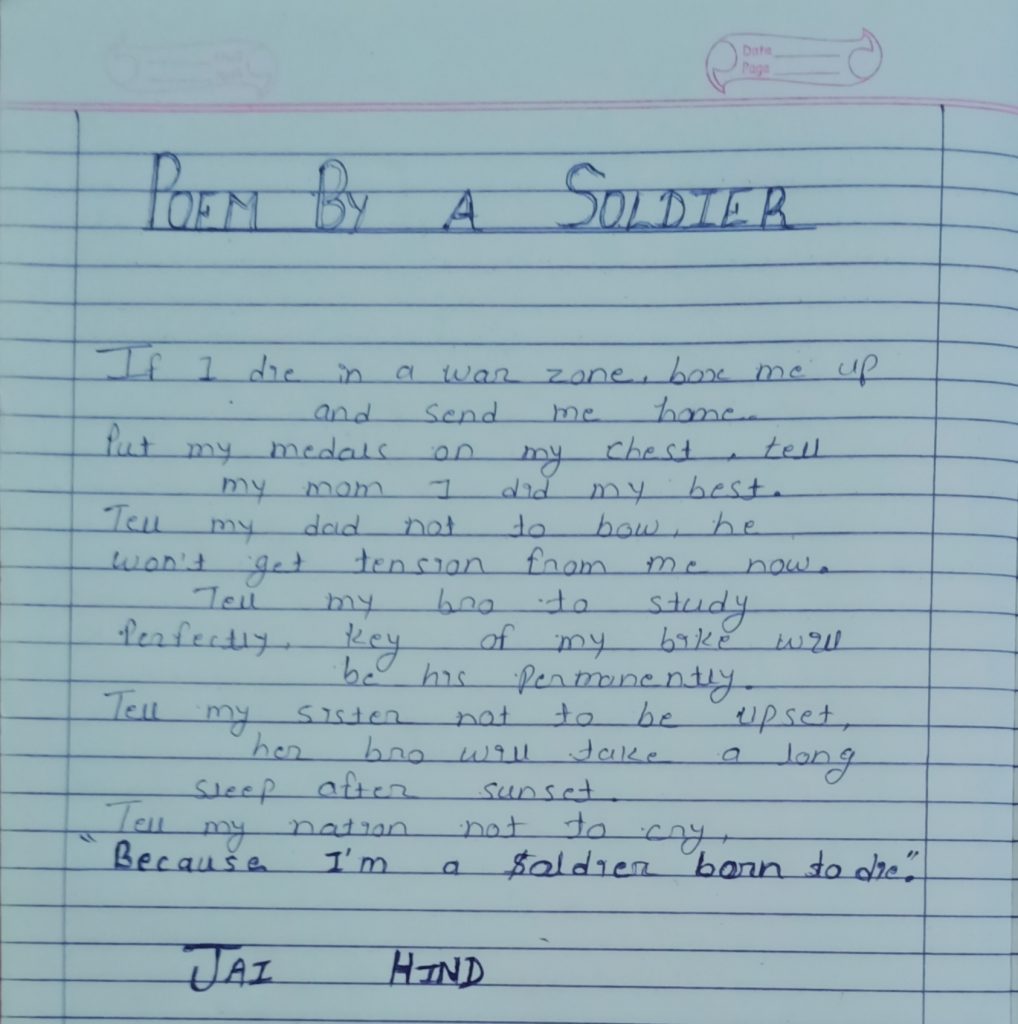 Date
Page
POEM BY A SOLDIER
If I die in a war zone, box me up
and send me home.
Put my medals on my chest, tell
my mom I did my best.
Tell my dad not to bow, he
won't get tension from me now.
Tell my bro to study
Perfectly, key of my bike will
be his permanently.
Tell my sister not to be upset,
her bro will take a long
sleep after sunset.
Tell my nation not to cry,
"Because I'm a Soldier born to die".
JAI HIND